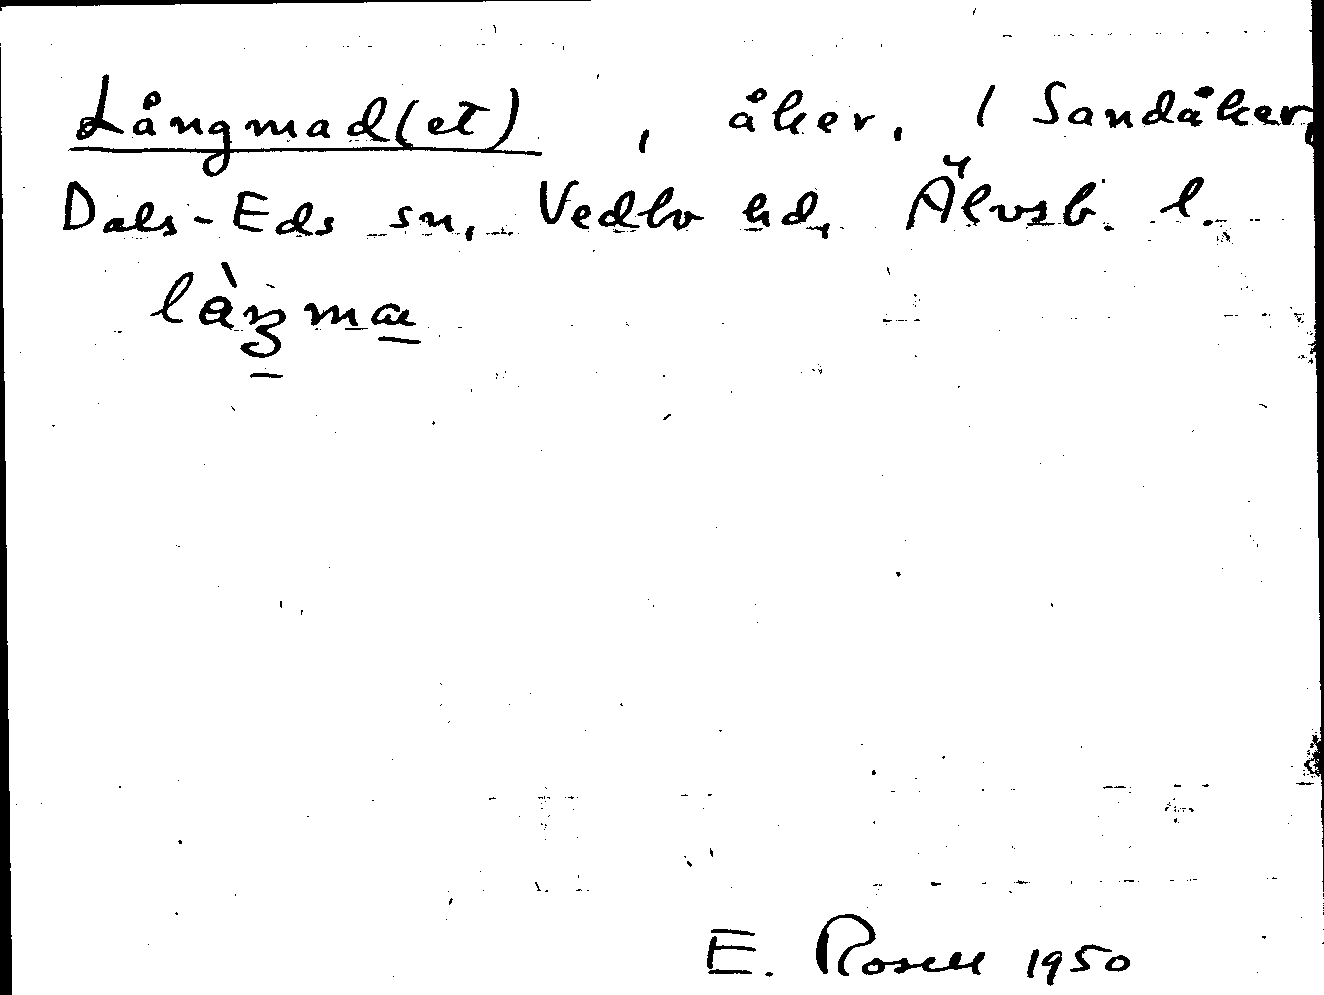 Långmad(et), åker, 1 Sandåker,
Dals-Eds sn, Vedbo hd, Älvsb. l.
E. Rosell 1950